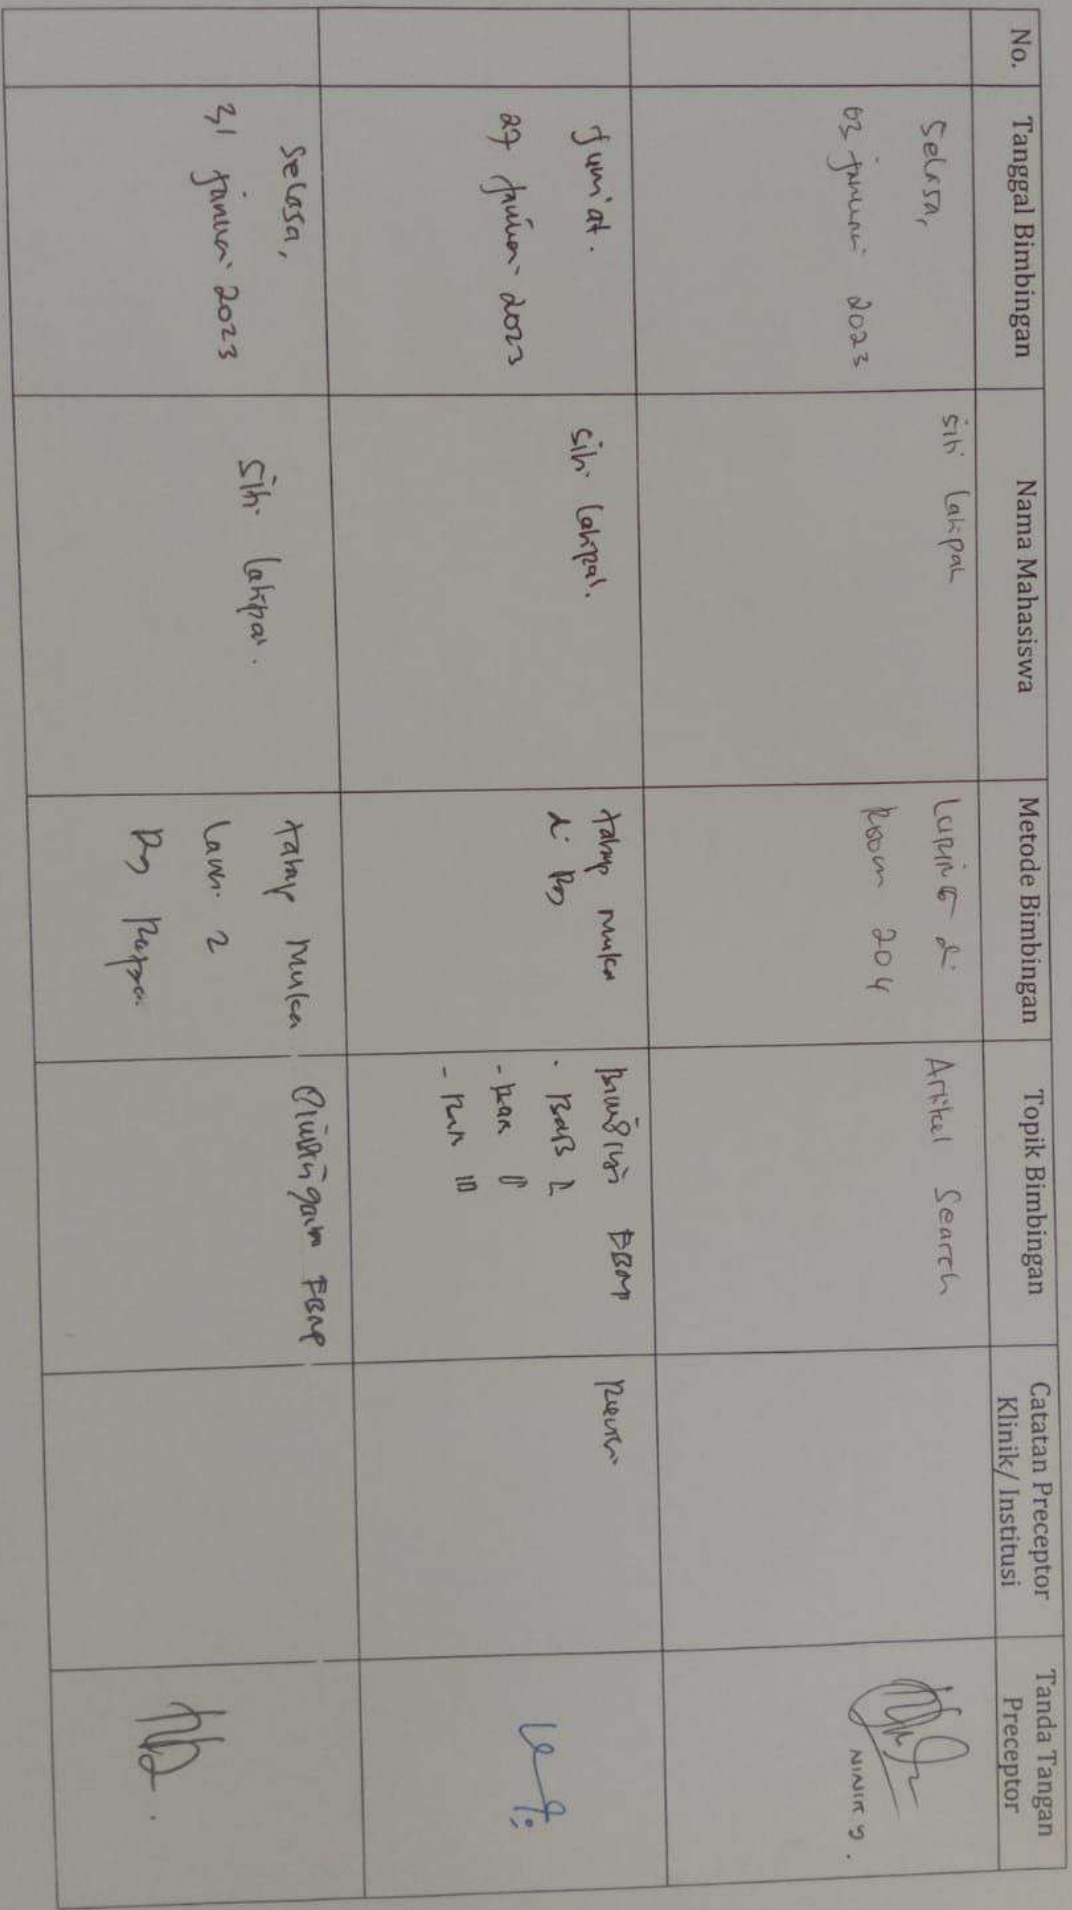 No.
Tanggal Bimbingan
Nama Mahasiswa
Metode Bimbingan
Topik Bimbingan
Catatan Preceptor
Klinik/ Institusi
Tanda Tangan
Preceptor
Selasa,
03 januari 2023
siti latipah
Luring di
Room 204
Artikel Search
NINIK S.
Jum'at.
27 januari 2023
siti latipah.
tatap muka
di RS
EBNP
- BAB I
- BAB II
- BAB III
Revisi
Selasa,
31 januari 2023
Siti latipah.
tatap muka
Lantai 2
RS
EBNP